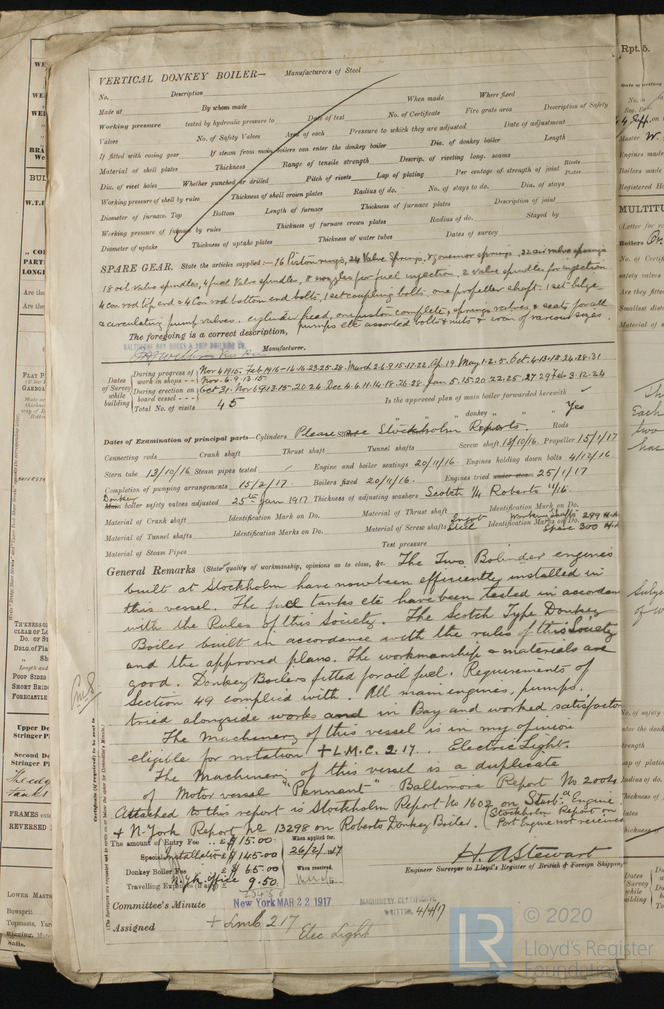 VERTICAL DONKEY BOILER— Manufacturers of Steel
No. Description
Made at By whom made When made Where fixed
Working pressure tested by hydraulic pressure to Date of test No. of Certificate Fire grate area Description of Safety
Valves No. of Safety Valves Area of each Pressure to which they are adjusted Date of adjustment
If fitted with easing gear If steam from main boilers can enter the donkey boiler Dia. of donkey boiler Length
Material of shell plates Thickness Range of tensile strength Descrip. of riveting long. seams
Dia. of rivet holes Whether punched or drilled Pitch of rivets Lap of plating Per centage of strength of joint Rivets Plates
Working pressure of shell by rules Thickness of shell crown plates Radius of do. No. of stays to do. Dia. of stays
Diameter of furnace. Top Bottom Length of furnace Thickness of furnace plates Description of joint
Working pressure of furnace by rules Thickness of furnace crown plates Radius of do. Stayed by
Diameter of uptake Thickness of uptake plates Thickness of water tubes Dates of survey
SPARE GEAR. State the articles supplied:— 16 Piston rings, 24 Valve Springs, 8 governor springs, 32 air valve springs
18 oil valve spindles, 4 fuel valve spindles, 8 nozzles for fuel injection, 2 valve spindles for injection
4 con rod top end & 4 Con rod bottom end bolts, 1 set coupling bolts, one propeller shaft. 1 set bilge
& circulating pump valves. cylinder head, one piston complete, springs valves & seats for all
pumps etc assorted bolts & nuts & iron of various sizes.
The foregoing is a correct description,
BALTIMORE DRY DOCKS & SHIP BUILDING CO.
Manufacturer.
Dates of Survey while building
During progress of work in shops -- Nov 4 1915. Feb 19 16-14-16-23-25-28. March 2-6-9-15-17-22 Ap. 19 May 1-2-5. Oct 4-13-18-24-28-31
Nov. 6-9-13-15
During erection on board vessel --- Oct 31. Nov 6 9-13-15-20 24 Dec 4.6.11.14.18.26.28. Jan 5.15.20 22.25.27 29 Feb 3.12.24
Total No. of visits 45
Is the approved plan of main boiler forwarded herewith ✓
" " " donkey " " " Yes
Dates of Examination of principal parts—Cylinders Please see Stockholm Reports. Rods
Connecting rods Crank shaft Thrust shaft Tunnel shafts Screw shaft 13/10/16 Propeller 15/1/17
Stern tube 13/10/16 Steam pipes tested ✓ Engine and boiler seatings 20/11/16 Engines holding down bolts 4/12/16
Completion of pumping arrangements 15/2/17. Boilers fixed 20/11/16. Engines tried under steam 25/1/17
Donkey Main boiler safety valves adjusted 25th Jan 1917 Thickness of adjusting washers Scotch 1/4 Roberts 11/16.
Material of Crank shaft Identification Mark on Do. Material of Thrust shaft Identification Mark on Do.
Material of Tunnel shafts Identification Marks on Do. Material of Screw shafts Ingot Steel Identification Marks on Do. Working Shafts 299 H.A. Spare 300 H.A.
Material of Steam Pipes Test pressure
General Remarks (State quality of workmanship, opinions as to class, &c. The Two Bolinder engines
built at Stockholm have now been efficiently installed in
this vessel. The fuel tanks etc have been tested in accordan
with the Rules of this Society. The Scotch Type Donkey
Boiler built in accordance with the rules of this Society
and the approved plans. The workmanship & materials are
good. Donkey Boilers fitted for oil fuel. Requirements of
Section 49 complied with. All main engines, pumps.
tried alongside works and in Bay and worked satisfactor
The Machinery of this vessel is in my opinion
eligible for notation +L.M.C. 2.17. Electric Light.
The Machinery of this vessel is a duplicate
of Motor vessel "Pennant" Baltimore Report No 2004
Attached to this report is Stockholm Report No 1602 on Starbd Engine
& N. York Report No 13298 on Roberts Donkey Boiler. (Stockholm Report on Port Engine not received
The amount of Entry Fee .. $ 15.00 When applied for,
Special Installation $ 145.00 26/2/17
Donkey Boiler Fee $ 65.00 When received,
Travelling Expenses (if any) $ 9.50
H. A. Stewart
Engineer Surveyor to Lloyd's Register of British & Foreign Shipping
Committee's Minute New York MAR 22 1917 MACHINERY CERTIFICATE WRITTEN 4/4/17
Assigned + LMC 2.17 Elec Light
Certificate (if required) to be sent to
(The Surveyors are requested not to write on or below the space for Committee's Minute.)
Rpt. 5.
MULTITU
© 2020
LR
Lloyd's Register
Foundation